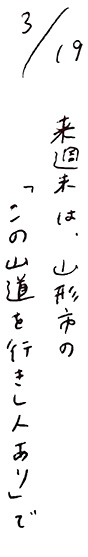 3/19
来週末は、山形市の
「この山道を行きし人あり」で